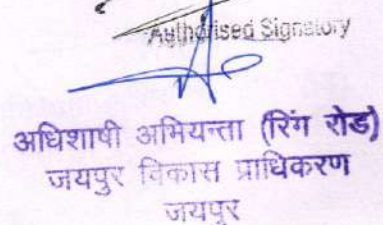 Authorised Signatory
अधिशाषी अभियन्ता (रिंग रोड)
जयपुर विकास प्राधिकरण
जयपुर